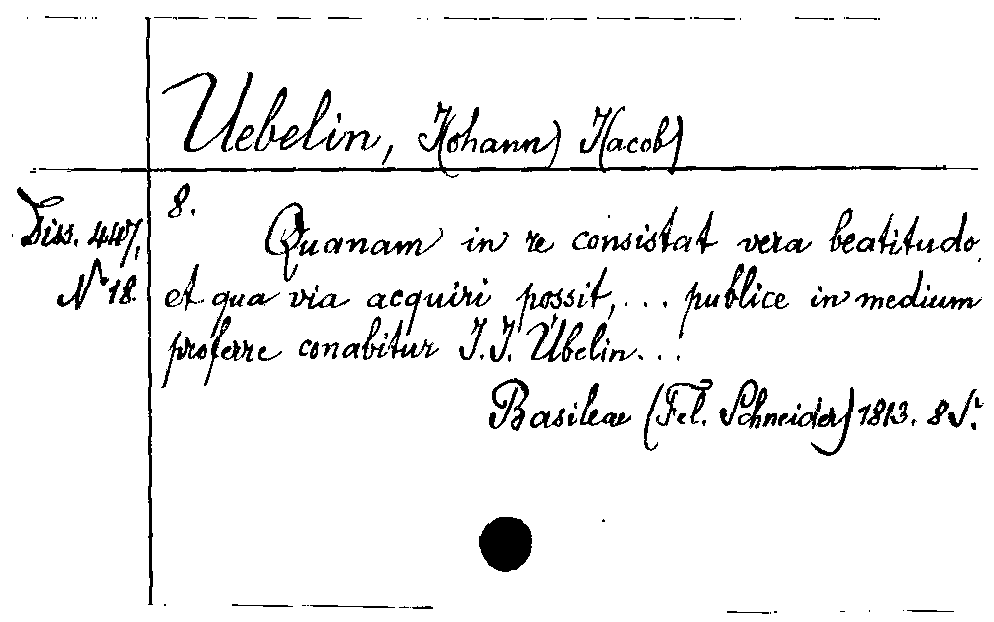 Uebelin, J(ohann) J(acob)
Diss. 447,
N° 18.
8.
Quanam in re consistat vera beatitudo,
et qua via acquiri possit, ... publice in medium
proferre conabitur J. J. Übelin...
Basileae (Fel. Schneider) 1813. 8 S.